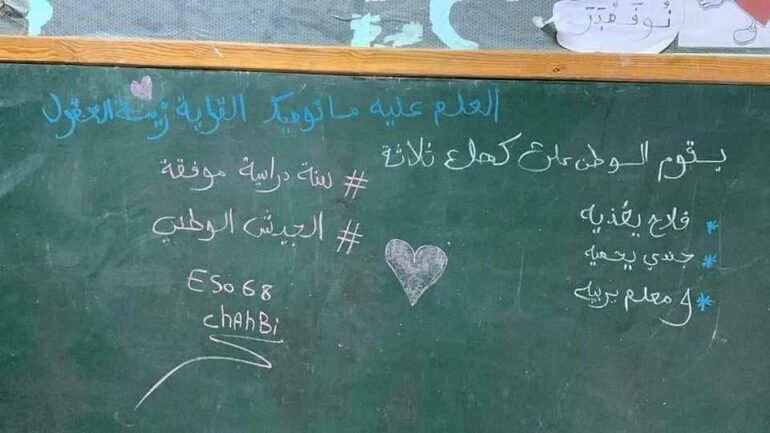 نُوفَمْبَر
العلم عليه مانوميك القراية زينة العقول
يقوم الوطن على كهل ثلاثة
* فلاح يغذيه
* جندي يحميه
* و معلم يربيه
# سنة دراسية موفقة
# الجيش الوطني
ESO 68
ChAhBi